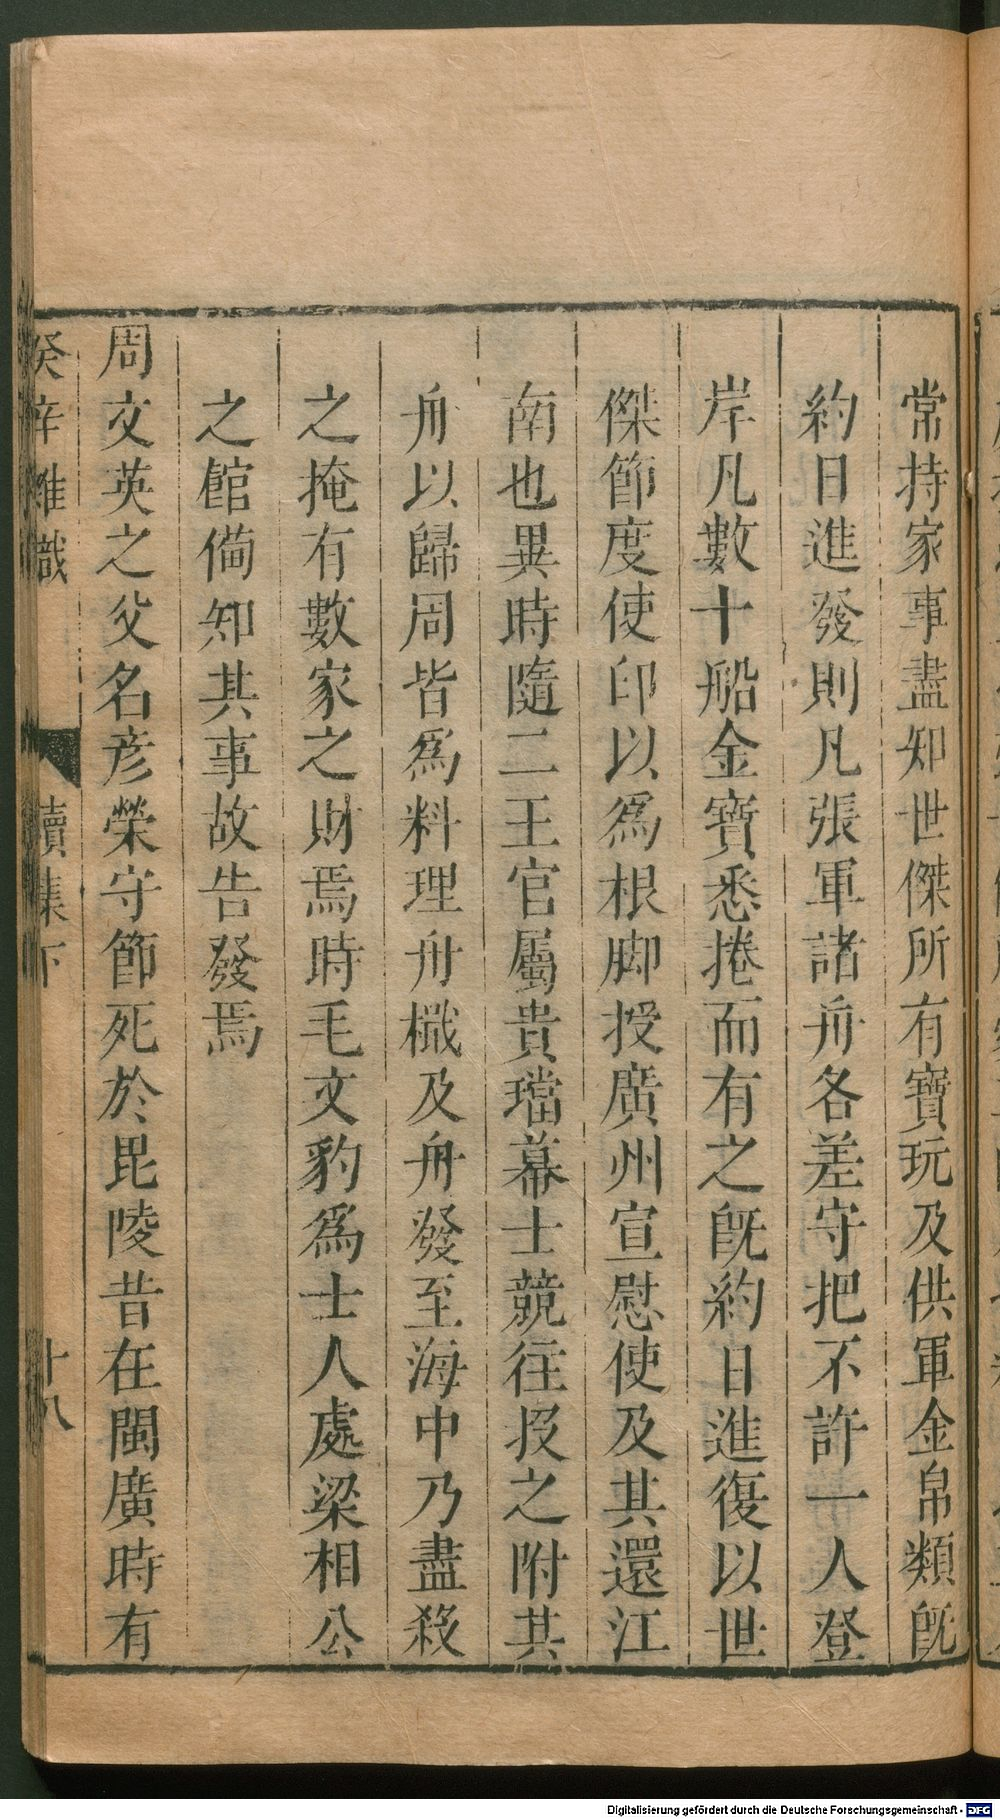 常持家事盡知世傑所有寶玩及供軍金帛類旣
約日進發則凡張軍諸舟各差守把不許一人登
岸凡數十船金寶悉捲而有之旣約日進復以世
傑節度使印以爲根脚授廣州宣慰使及其還江
南也異時隨二王官屬貴璫幕士競往投之附其
舟以歸周皆爲料理舟檝及舟發至海中乃盡殺
之掩有數家之財焉時毛文豹爲士人處梁相公
之館備知其事故告發焉
周文英之父名彦榮守節死於毘陵昔在閩廣時有
癸辛雜識 續集下 十八
Digitalisierung gefördert durch die Deutsche Forschungsgemeinschaft - DFG